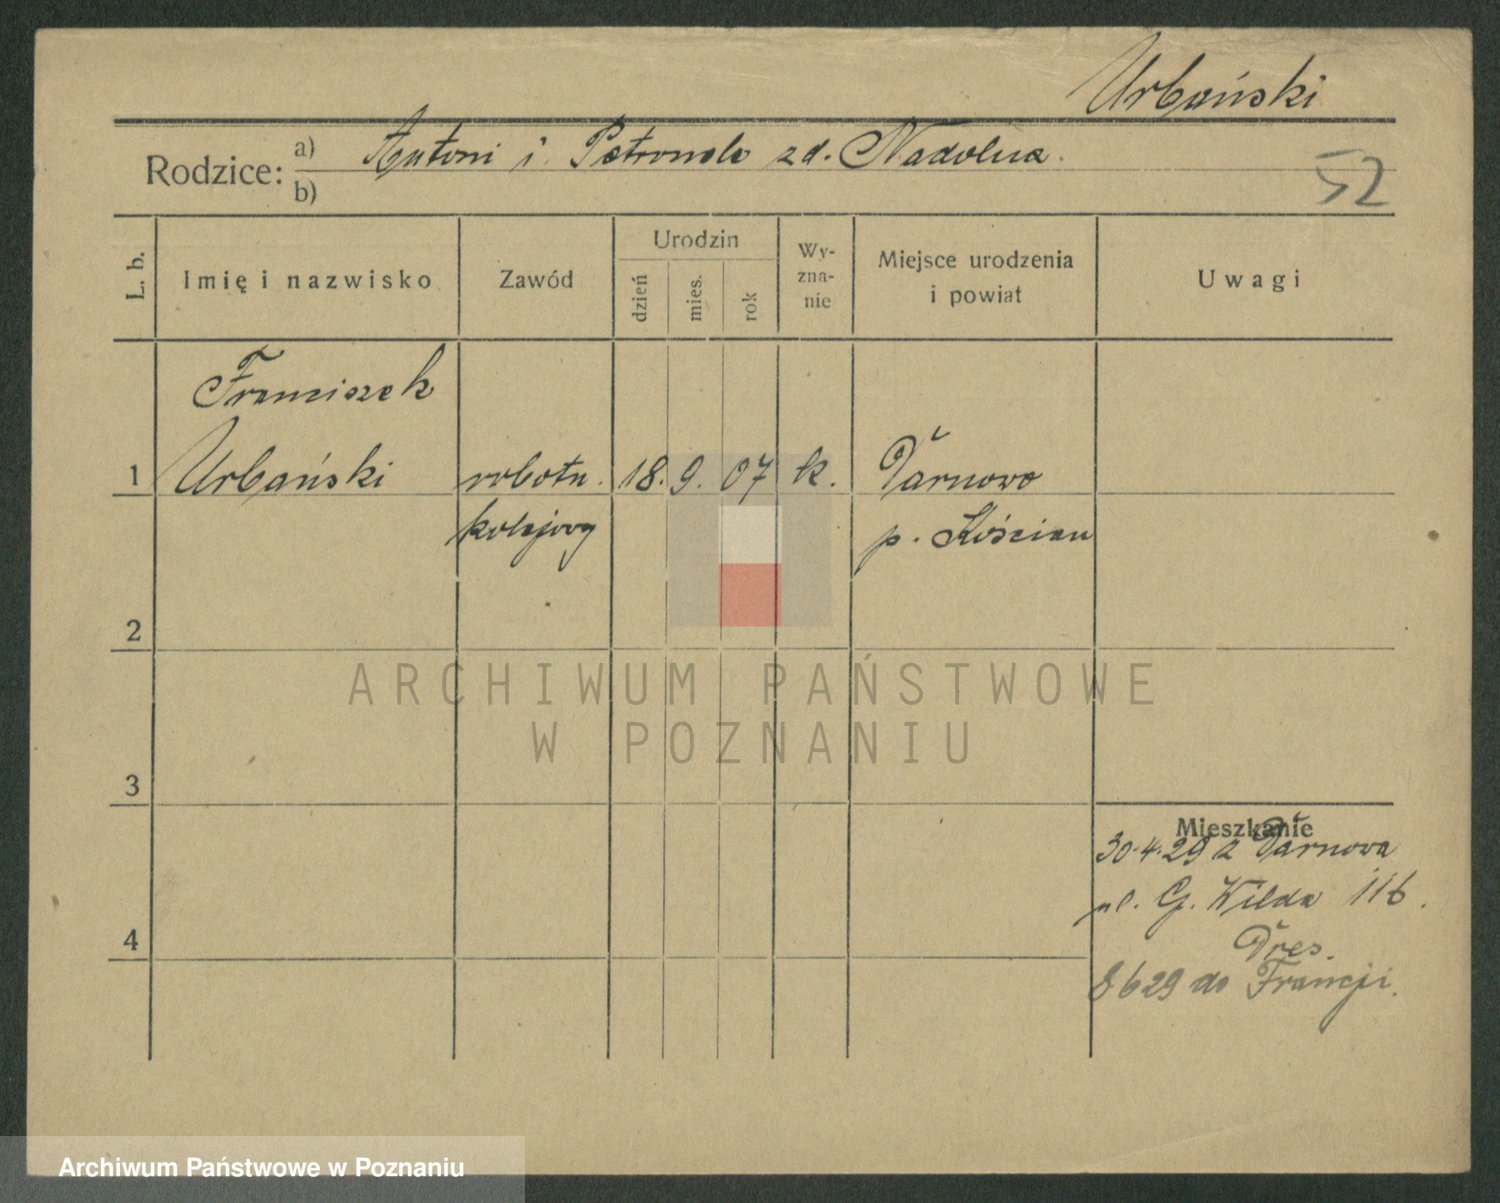 Urbański
Rodzice: a) Antoni i Petronela zd. Nadolna.
b)
52
L. b.
Imię i nazwisko
Zawód
Urodzin
dzień
mies.
rok
Wy-
zna-
nie
Miejsce urodzenia
i powiat
Uwagi
Franciszek
1 Urbański robotn. 18. 9. 07 k. Tarnowo
kolejowy p. Kościan
2
ARCHIWUM PAŃSTWOWE
W POZNANIU
3
Mieszkanie
30.4.29 z Tarnowa
ul. G. Wilda 116.
4
8 6 29 do Francji.
Archiwum Państwowe w Poznaniu